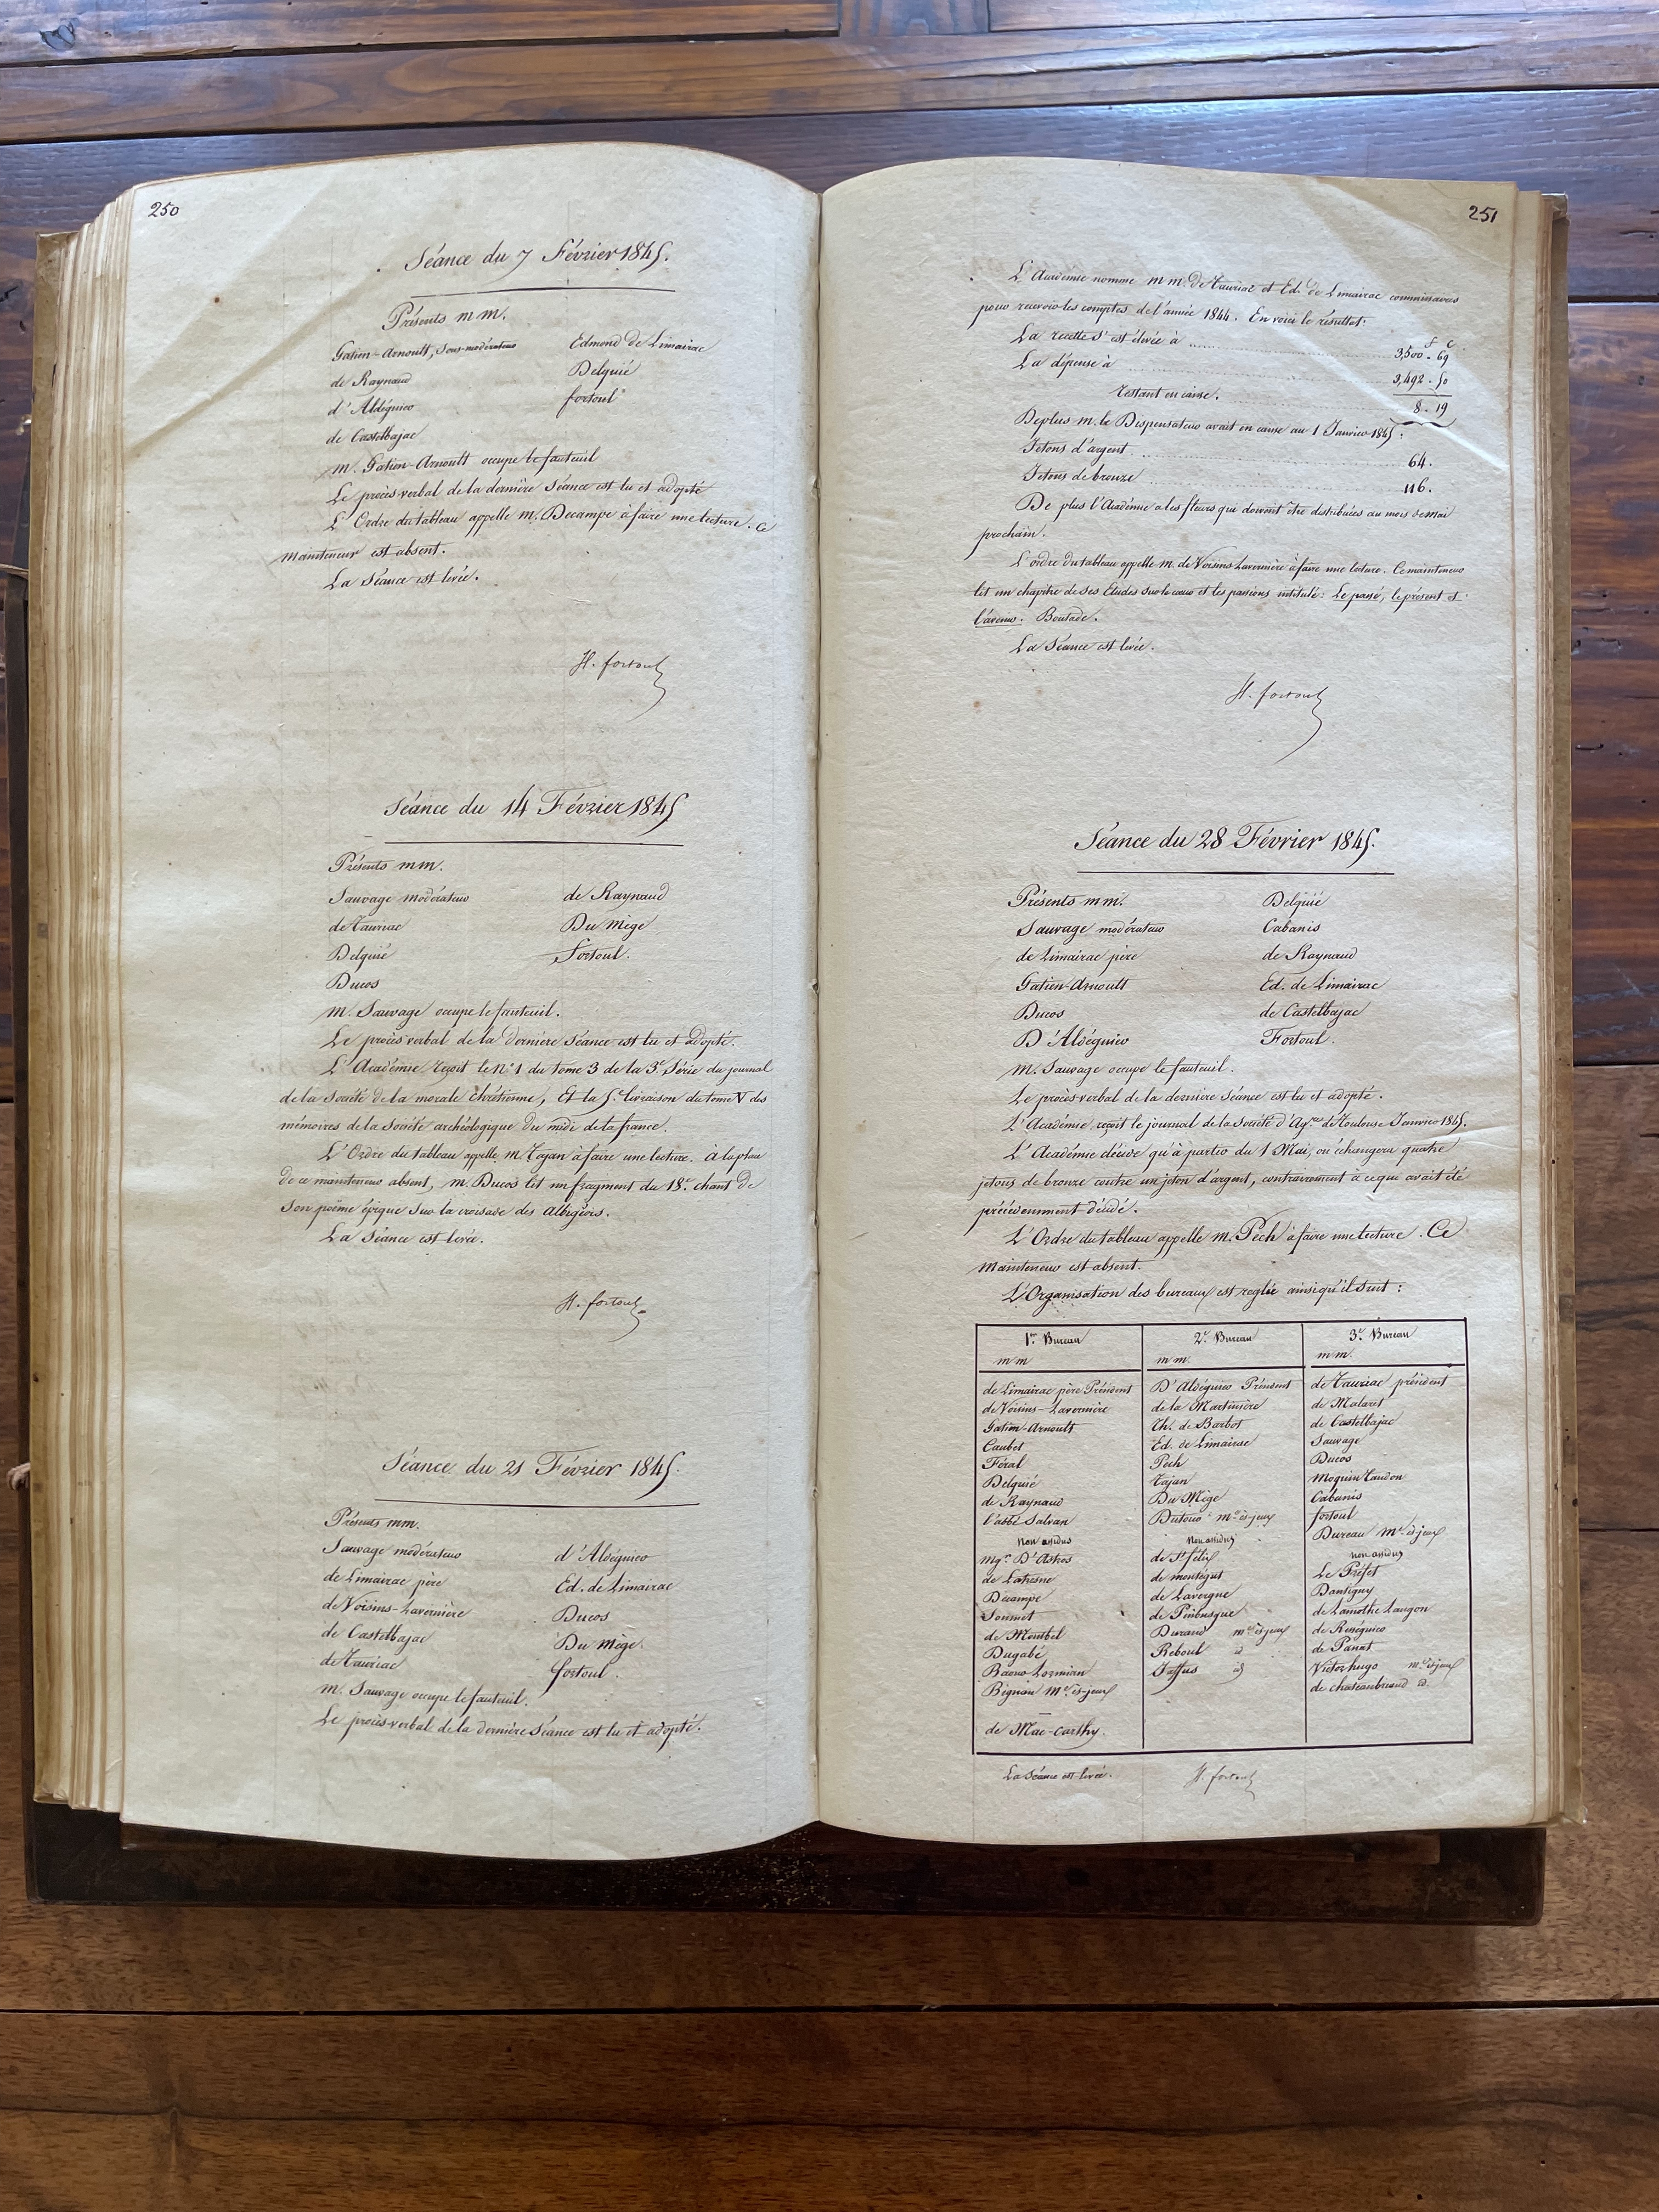 250
Séance du 7 Février 1845.
Présents mm.
Gatien-Arnoult, Sous-modérateur
Edmond de Limairac
de Raynaud
Delquié
d'Aldéguier
fortoul
de Castelbajac
m. Gatien-Arnoult occupe le fauteuil
Le procès-verbal de la dernière Séance est lu et adopté
L'Ordre du tableau appelle m. Decampe à faire une lecture. Ce
mainteneur est absent.
La Séance est levée.
H. fortoul
Séance du 14 Février 1845
Présents mm.
Sauvage modérateur
de Raynaud
de Tauriac
Du Mège
Delquié
Fortoul.
Ducos
m. Sauvage occupe le fauteuil.
Le procès verbal de la dernière Séance est lu et adopté.
L'Académie reçoit le N° 1 du tome 3 de la 3e Série du journal
de la Société de la morale Chrétienne, Et la 5e livraison du tome V des
mémoires de la Société archéologique du midi de la france.
L'Ordre du tableau appelle m. Tajan à faire une lecture. à la place
de ce mainteneur absent, m. Ducos lit un fragment du 18e chant de
son poëme épique sur la croisade des Albigeois.
La Séance est levée.
H. fortoul
Séance du 21 Février 1845.
Présents mm.
Sauvage modérateur
d'Aldéguier
de Limairac père
Ed. de Limairac
de Voisins-Lavernière
Ducos
de Castelbajac
Du Mège
de Tauriac
fortoul.
m. Sauvage occupe le fauteuil.
Le procès-verbal de la dernière Séance est lu et adopté.
251
L'Académie nomme mm. de Tauriac et Ed. de Limairac commissaires
pour recevoir les comptes de l'année 1844. En voici le résultat:
f c
La recette s'est élevée à .... 3,500 . 69
La dépense à 3,492 . 50
restant en caisse. 8 . 19
De plus m. le Dispensateur avait en caisse au 1 Janvier 1845:
Jetons d'argent 64.
Jetons de bronze 116.
De plus l'Académie a les fleurs qui doivent être distribuées au mois de mai
prochain.
L'ordre du tableau appelle m. de Voisins Lavernière à faire une lecture. Ce mainteneur
lit un chapitre de ses Etudes sur le cœur et les passions intitulé: Le passé, le présent et
l'avenir. Boutade.
La Séance est levée.
H. fortoul
Séance du 28 Février 1845.
Présents mm.
Delquié
Sauvage modérateur
Cabanis
de Limairac père
de Raynaud
Gatien-Arnoult
Ed. de Limairac
Ducos
de Castelbajac
D'Aldéguier
Fortoul.
m. Sauvage occupe le fauteuil.
Le procès-verbal de la dernière Séance est lu et adopté.
L'Académie reçoit le journal de la Société d'Agre de Toulouse Janvier 1845.
L'Académie décide qu'à partir du 1 Mai, on échangera quatre
jetons de bronze contre un jeton d'argent, contrairement à ce qui avait été
précédemment décidé.
L'Ordre du tableau appelle m. Pech à faire une lecture. Ce
mainteneur est absent.
L'Organisation des bureaux est reglée ainsi qu'il suit:
1er Bureau
mm
de Limairac père Président
de Voisins-Lavernière
Gatien-Arnoult
Caubet
Féral
Delquié
de Raynaud
l'abbé Salvan
Non assidus
Mgr. D'Astros
de Latresne
Décampe
Soumet
de Montbel
Dugabé
Baour Lormian
Bignan me ès-jeux
de Mac-carthy
2e Bureau
mm.
D'Aldéguier Président
de la Martinière
Th. de Barbot
Ed. de Limairac
Pech
Tajan
Du Mège
Dutour me ès-jeux
Non assidus
de St félix
de montégut
de Lavergne
de Pinbusque
Durand me ès jeux
Reboul d
Jaffus id
3e Bureau
mm.
de Tauriac président
de Malaret
de Castelbajac
Sauvage
Ducos
Moquin Tandon
Cabanis
fortoul
Bureau me ès jeux
non assidus
Le Préfet
Dantigny
de Lamothe Langon
de Rességuier
de Panat
Victor hugo me ès jeux
de chateaubriand id.
La Séance est levée.
H. fortoul